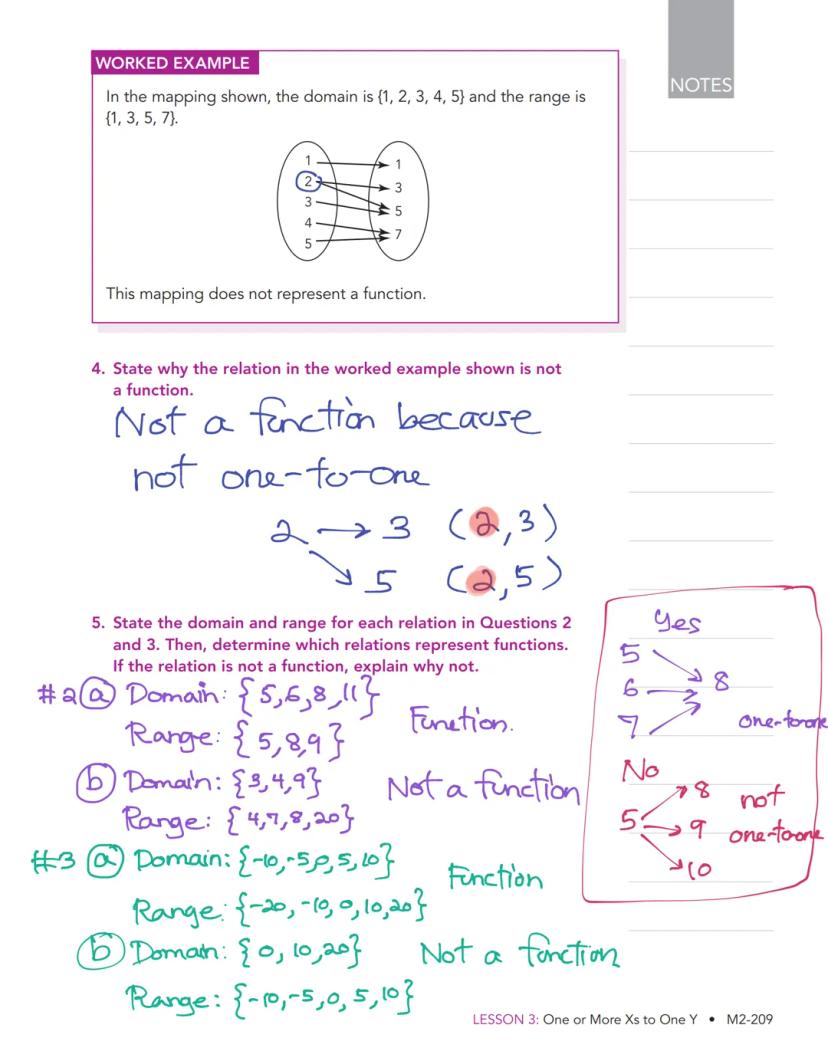 NOTES
WORKED EXAMPLE
In the mapping shown, the domain is {1, 2, 3, 4, 5} and the range is
{1, 3, 5, 7}.
1 1
2 3
3 5
4 7
5
This mapping does not represent a function.
4. State why the relation in the worked example shown is not
a function.
Not a function because
not one-to-one
2 → 3 (2,3)
5 (2,5)
5. State the domain and range for each relation in Questions 2
and 3. Then, determine which relations represent functions.
If the relation is not a function, explain why not.
#2 a Domain: {5,6,8,11}
Range: {5,8,9}
Function.
b Domain: {3,4,9}
Not a function
Range: {4,7,8,20}
#3 a Domain: {-10,-5,0,5,10}
Function
Range: {-20,-10,0,10,20}
b Domain: {0,10,20}
Not a function
Range: {-10,-5,0,5,10}
Yes
5
6 8
7 one-to-one
No
8
5 9
10
not
one-to-one
LESSON 3: One or More Xs to One Y • M2-209